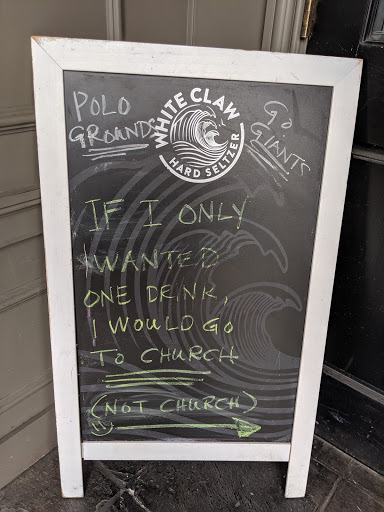 POLO
GROUNDS
WHITE CLAW
HARD SELTZER
GO
GIANTS
IF I ONLY
WANTED
ONE DRINK,
I WOULD GO
TO CHURCH
(NOT CHURCH)